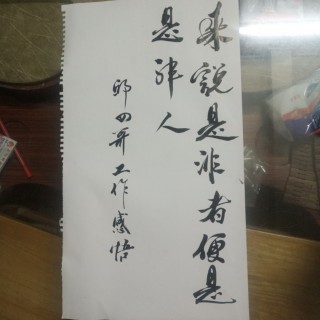 来说是非者便是
是非人
邱四哥工作感悟